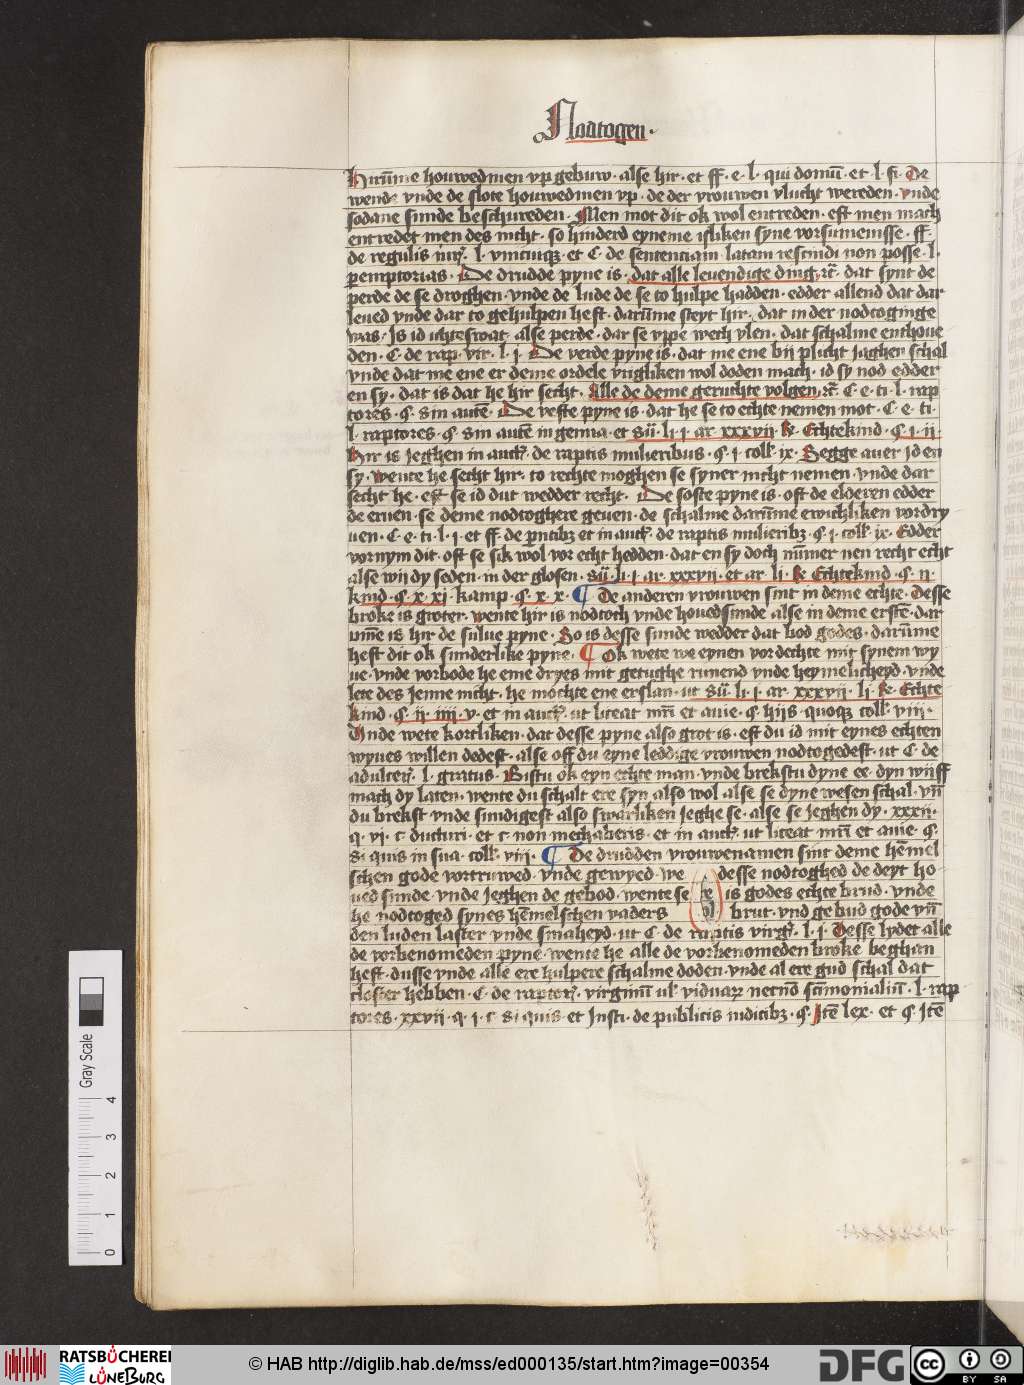 Nodtogen.
Hirūme houwedmen vp gebuw. alse hir. et ff. e. l. qui domū. et l. fi. De
wende vnde de slote houwedmen vp. de der vrouwen vlucht wereden. vnde
sodane sunde beschureden. Men mot dit ok wol entreden. est men mach
entredet men des nicht. so hinderd eyneme isliken syne vorsumenisse. ff.
de regulis iur. l. vnicuiqz. et C. de sententiam latam rescindi non posse. l.
peremptorias. De drudde pyne is. dat alle leuendige ding rc̄. dat synt de
perde de se droghen. vnde de lude de se to hulpe hadden. edder allend dat dar
leued vnde dar to gehulpen heft. darūme steyt hir. dat in der nodtoginge
was. Is id ichteswat. alse perde. dar se vppe wech ylen. dat schalme enthoue
den. C. de rap. vir. l. j. De verde pyne is. dat me ene bij plicht jaghen schal
vnde dat me ene er deme ordele vrigliken wol doden mach. id sy nod edder
en sy. dat is dat he hir secht. Alle de deme geruchte volgen. rc̄. C. e. ti. l. rap
tores. §. Sin autē. De vefte pyne is. dat he se to echte nemen mot. C. e. ti.
l. raptores. §. sin autē in genna. et sū. li. j. ar. xxxvij. k. Echtekind. §. j. ij.
Hir is jeghen in auct. de raptis mulieribus. §. j. coll. ix. Segge auer id en
sy. wente he secht hir. to rechte moghen se syner nicht nemen. vnde dar
secht he. est se id dut wedder recht. De soste pyne is. oft de elderen edder
de eruen. se deme nodtoghere geuen. de schalme darūme ewichliken vordry
uen. C. e. ti. l. j. et ff. de pentibz et in auct. de raptis mulieribz. §. j. coll. ix. Edder
vornym dit. oft se sik wol vor echt hedden. dat en sy doch nūmer nen recht echt
alse wij dy seden. in der glosen. sū. li. j. ar. xxxvij. et ar. li. k. Echtekind. §. ij.
kind. §. x. xi. kamp. §. x. x. ¶ De anderen vrouwen sint in deme echte. Desse
broke is groter. wente hir is nodtoch vnde houedsunde alse in deme erstē. dar
vmē is hir de sulue pyne. So is desse sunde wedder dat bod godes. darūme
heft dit ok sunderlike pyne. ¶ Ok wete we eynen vordechte mit synem wy
ue. vnde vorbode he eme dryes mit getughe runend vnde heymelicheyd. vnde
lete des jenne nicht. he mochte ene erslan. ut sū. li. j. ar. xxxvij. li. k. Echte
kind. §. ij. iiij. v. et in auct. ut liceat mri et auie. §. hijs quoqz coll. viij.
Unde wete kortliken. dat desse pyne also grot is. est du id mit eynes echten
wyues willen dedest. alse off du eyne leddige vrouwen nodtogedest. ut C. de
adulter. l. gratus. Bistu ok eyn echte man. vnde brekstu dyne ee. dyn wijff
mach dy laten. wente du schalt ere syn also wol alse se dyne wesen schal. vn̄
du brekst vnde sundigest also swarliken jeghe se. alse se jeghen dy. xxxij.
q. vi. c. dicturi. et c. non mechaberis. et in auct. ut liceat mri et auie. §.
Si quis in sua. coll. viij. ¶ De drudden vrouwenamen sint deme hēmel
schen gode vortruwed. vnde gewyed. we desse nodtoghed de deyt ho
ued sunde. vnde jeghen de gebod. wente se re is godes echte brud. vnde
he nodtoged synes hēmelschen vaders brut. vnd gebud gode vn̄
den luden laster vnde smaheyd. ut C. de raptis virg. l. j. Desse lydet alle
de vorbenomeden pyne. wente he alle de vorbenomeden broke beghan
heft. dusse vnde alle ere hulpere schalme doden. vnde al ere gud schal dat
closter hebben. C. de raptor. virginū ul viduar necnō scimonialiū. l. rap
tores. xxvij. q. j. c. Si quis. et Insti. de publicis iudicibz. §. Itē lex. et §. Itē
Gray Scale
0 1 2 3 4
RATSBÜCHEREI LÜNEBURG
© HAB http://diglib.hab.de/mss/ed000135/start.htm?image=00354
DFG
cc BY SA